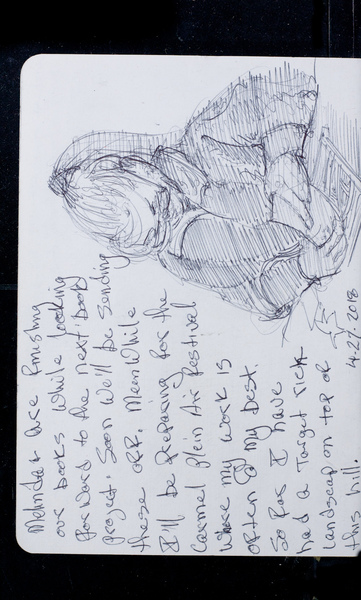 Melinda & I are finishing
our books while looking
forward to the next book
project. Soon we'll be sending
these off. Meanwhile
I'll be preparing for the
Carmel Plein Air festival
where my work is
often @ my best.
So far I have
had a Target rich
landscap on top of
this hill.
4.27.2018